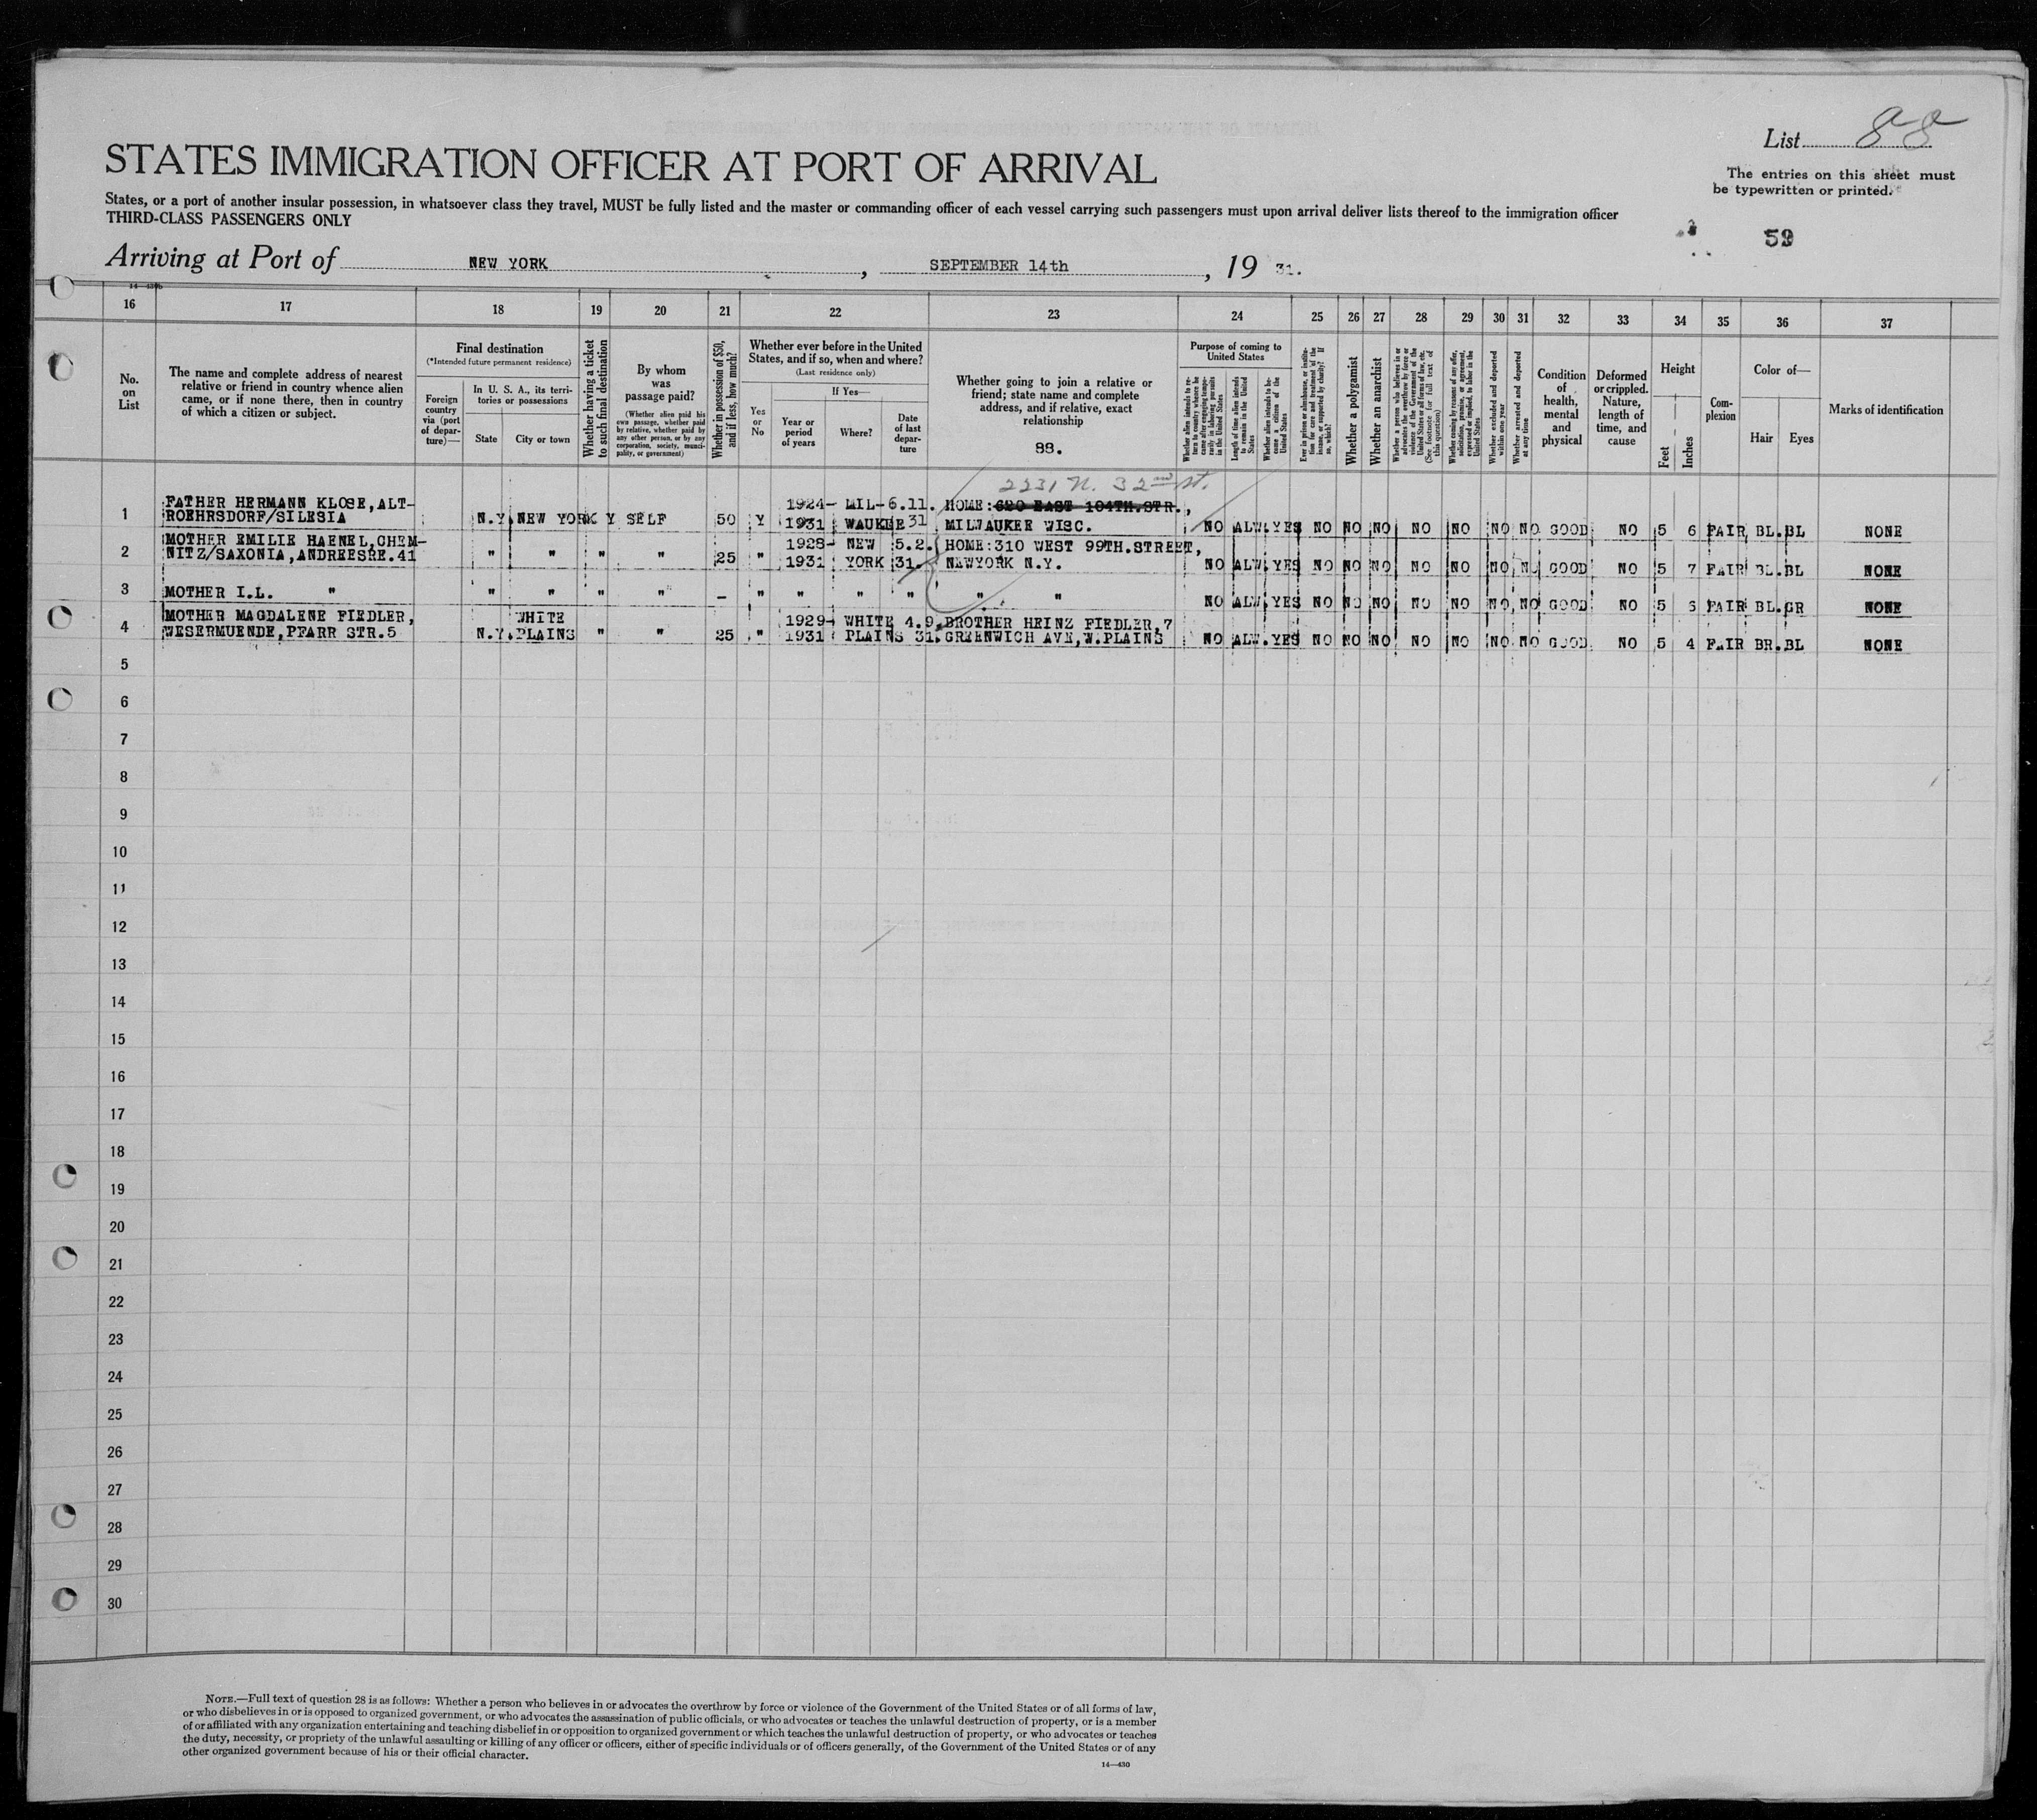 List 88
STATES IMMIGRATION OFFICER AT PORT OF ARRIVAL
The entries on this sheet must
be typewritten or printed.
States, or a port of another insular possession, in whatsoever class they travel, MUST be fully listed and the master or commanding officer of each vessel carrying such passengers must upon arrival deliver lists thereof to the immigration officer
THIRD-CLASS PASSENGERS ONLY
59
Arriving at Port of NEW YORK, SEPTEMBER 14th, 19 31.
16 17 18 19 20 21 22 23 24 25 26 27 28 29 30 31 32 33 34 35 36 37
No. on List
The name and complete address of nearest
relative or friend in country whence alien
came, or if none there, then in country
of which a citizen or subject.
Final destination
(*Intended future permanent residence)
Foreign country via (port of departure)—
In U. S. A., its territories or possessions
State
City or town
Whether having a ticket to such final destination
By whom was passage paid?
(Whether alien paid his own passage, whether paid by relative, whether paid by any other person, or by any corporation, society, municipality, or government)
Whether in possession of $50, and if less, how much?
Whether ever before in the United
States, and if so, when and where?
(Last residence only)
Yes or No
If Yes—
Year or period of years
Where?
Date of last departure
Whether going to join a relative or
friend; state name and complete
address, and if relative, exact
relationship
88.
Purpose of coming to United States
Whether alien intends to return to country whence he came after engaging temporarily in laboring pursuits in the United States
Length of time alien intends to remain in the United States
Whether alien intends to become a citizen of the United States
Ever in prison or almshouse, or institution for care and treatment of the insane, or supported by charity? If so, which?
Whether a polygamist
Whether an anarchist
Whether a person who believes in or advocates the overthrow by force or violence of the Government of the United States or all forms of law, etc. (See footnote for full text of this question)
Whether coming by reason of any offer, solicitation, promise, or agreement, expressed or implied, to labor in the United States
Whether excluded and deported within one year
Whether arrested and deported at any time
Condition of health, mental and physical
Deformed or crippled. Nature, length of time, and cause
Height
Feet
Inches
Complexion
Color of—
Hair
Eyes
Marks of identification
2231 N. 32nd St.
FATHER HERMANN KLOSE, ALT- 1924- MIL- 6.11. HOME: 620 EAST 104TH.STR.,
1 ROEHRSDORF/SILESIA N.Y. NEW YORK Y SELF 50 Y 1931 WAUKEE 31 MILWAUKEE WISC. NO ALW. YES NO NO NO NO NO NO NO GOOD NO 5 6 FAIR BL. BL NONE
MOTHER EMILIE HAENEL, CHEM- 1928- NEW 5.2. HOME: 310 WEST 99TH.STREET,
2 NITZ/SAXONIA, ANDREESRE.41 " " " " 25 " 1931 YORK 31. NEWYORK N.Y. NO ALW. YES NO NO NO NO NO NO NO GOOD NO 5 7 FAIR BL. BL NONE
3 MOTHER I.L. " " " " " — " " " " " " NO ALW. YES NO NO NO NO NO NO NO GOOD NO 5 6 FAIR BL. GR NONE
MOTHER MAGDALENE FIEDLER, WHITE 1929- WHITE 4.9. BROTHER HEINZ FIEDLER, 7
4 WESERMUENDE, PFARR STR.5 N.Y. PLAINS " " 25 " 1931 PLAINS 31. GREENWICH AVE, W.PLAINS NO ALW. YES NO NO NO NO NO NO NO GOOD NO 5 4 FAIR BR. BL NONE
5
6
7
8
9
10
11
12
13
14
15
16
17
18
19
20
21
22
23
24
25
26
27
28
29
30
NOTE.—Full text of question 28 is as follows: Whether a person who believes in or advocates the overthrow by force or violence of the Government of the United States or of all forms of law,
or who disbelieves in or is opposed to organized government, or who advocates the assassination of public officials, or who advocates or teaches the unlawful destruction of property, or is a member
of or affiliated with any organization entertaining and teaching disbelief in or opposition to organized government or which teaches the unlawful destruction of property, or who advocates or teaches
the duty, necessity, or propriety of the unlawful assaulting or killing of any officer or officers, either of specific individuals or of officers generally, of the Government of the United States or of any
other organized government because of his or their official character.
14—430